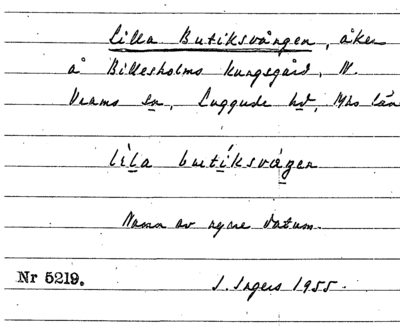 Lilla Butiksvången, åker
å Billesholms kungsgård, N.
Vrams sn, Luggude hd, Mhs län
lìla butíksvàŋen
Namn av yngre datum.
Nr 5219. I. Ingers 1955.